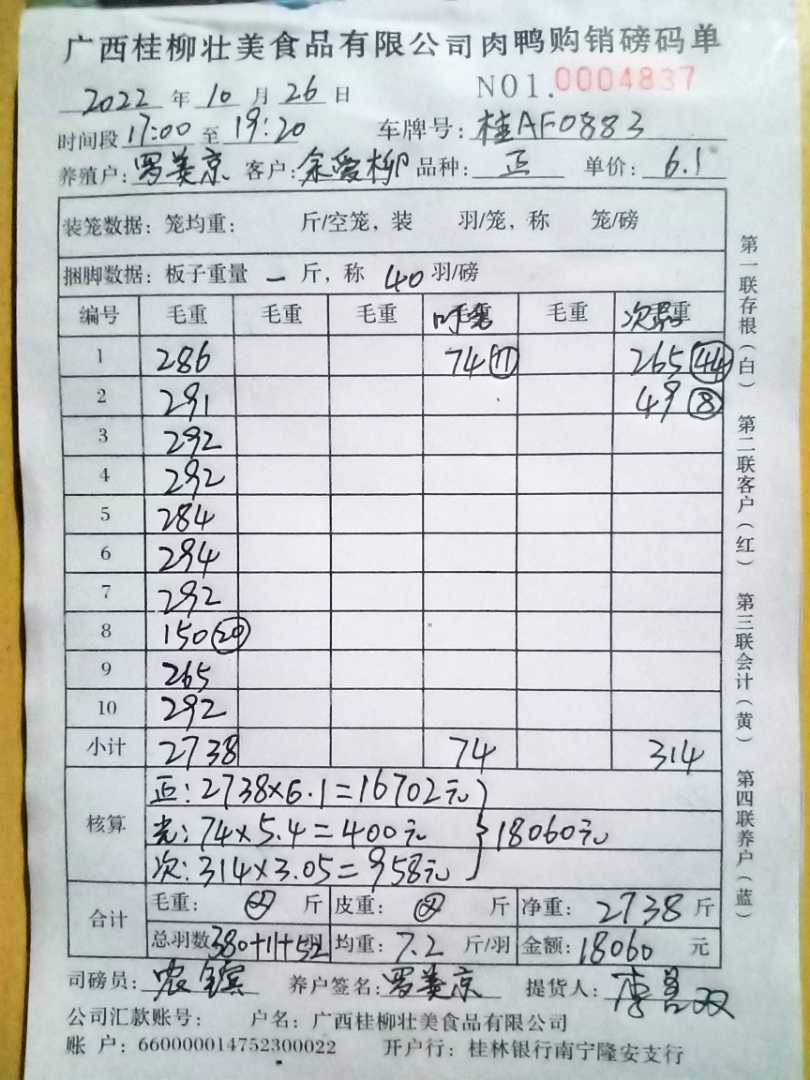 广西桂柳壮美食品有限公司肉鸭购销磅码单
2022 年 10 月 26 日 NO1.0004837
时间段 17:00 至 19:20 车牌号: 桂AF0883
养殖户: 罗美京 客户: 余爱柳 品种: 正 单价: 6.1
装笼数据: 笼均重: 斤/空笼, 装 羽/笼, 称 笼/磅
捆脚数据: 板子重量 一 斤, 称 40 羽/磅
编号 毛重 毛重 毛重 毛重 次 重
1 286 74 ⑪ 265 ㊹
2 291 49 ⑧
3 292
4 292
5 284
6 294
7 292
8 150 ⑳
9 265
10 292
小计 2738 74 314
核算
正: 2738×6.1=16702元
光: 74×5.4=400元 } 18060元
次: 314×3.05=958元
合计 毛重: 斤 皮重: 斤 净重: 2738 斤
总羽数 380+11+52 羽 均重: 7.2 斤/羽 金额: 18060 元
司磅员: 农 养户签名: 罗美京 提货人: 李 双
公司汇款账号: 户名: 广西桂柳壮美食品有限公司
账 户: 660000014752300022 开户行: 桂林银行南宁隆安支行
第一联存根(白) 第二联客户(红) 第三联会计(黄) 第四联养户(蓝)